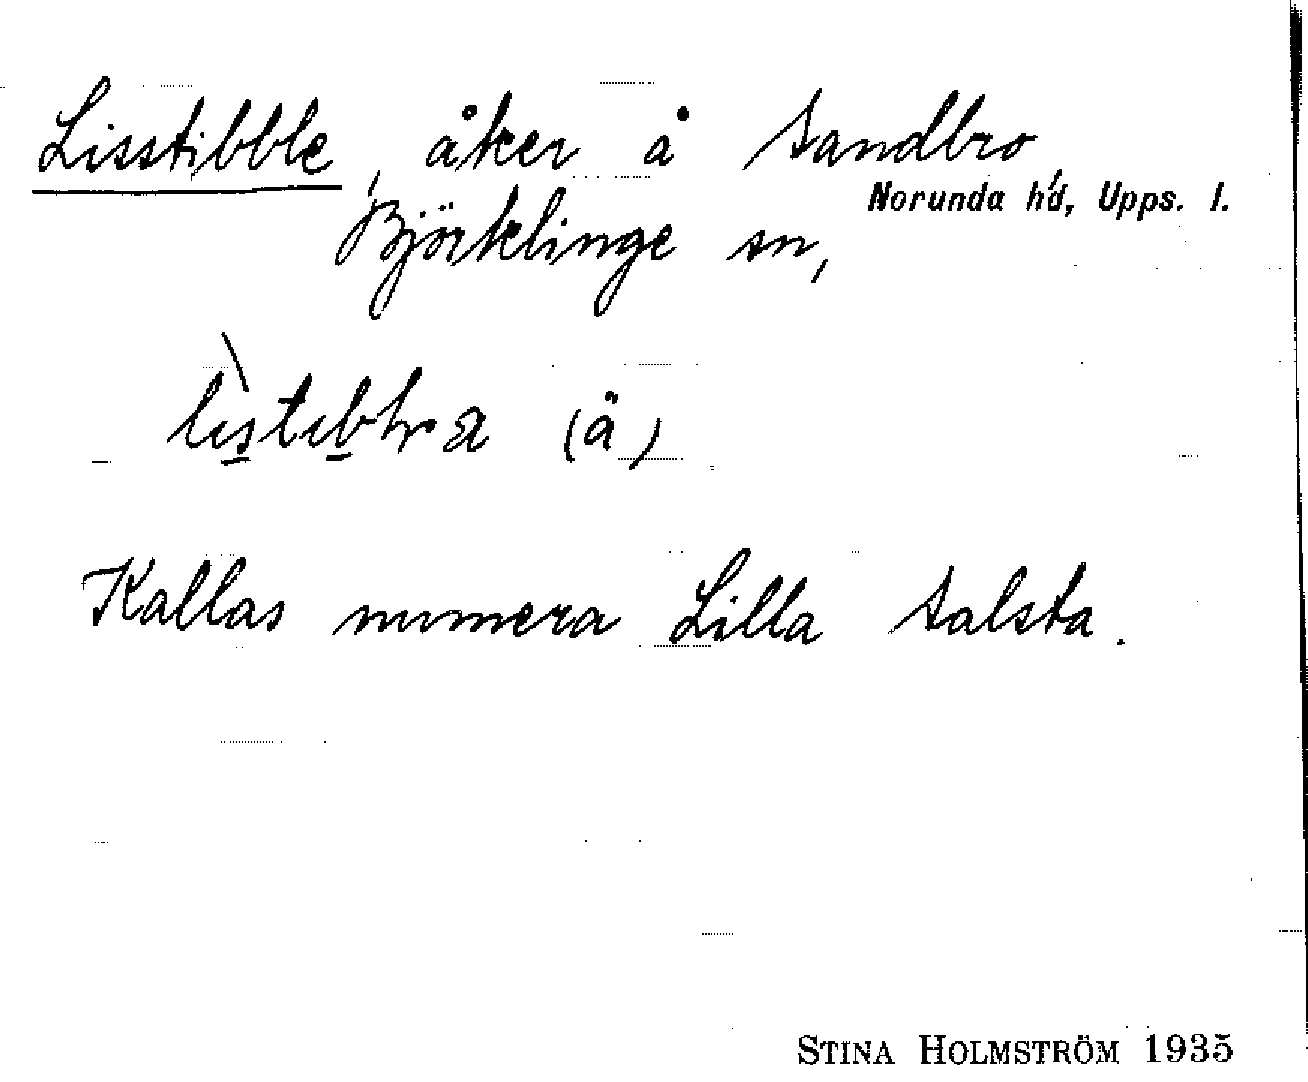 Lisstibble, åker å Sandbro,
Norunda hd, Upps. l.
Björklinge sn,
(ä)
Kallas numera Lilla Salsta.
STINA HOLMSTRÖM 1935